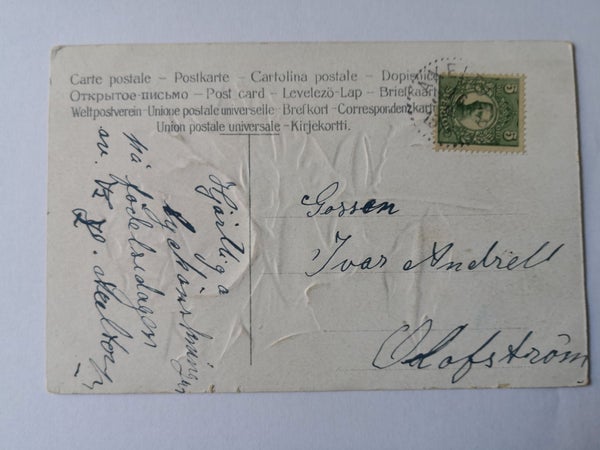 Carte postale – Postkarte – Cartolina postale – Dopisnice
Открытое письмо – Post card – Levelezö-Lap – Briefkaart
Weltpostverein – Unione postale universelle – Brefkort – Correspondenzkarte
Union postale universale – Kirjekortti.
5 5
Gossen
Ivar Andrell
Olofström
Hjärtliga
lyckönskningar
på födelsedagen
av